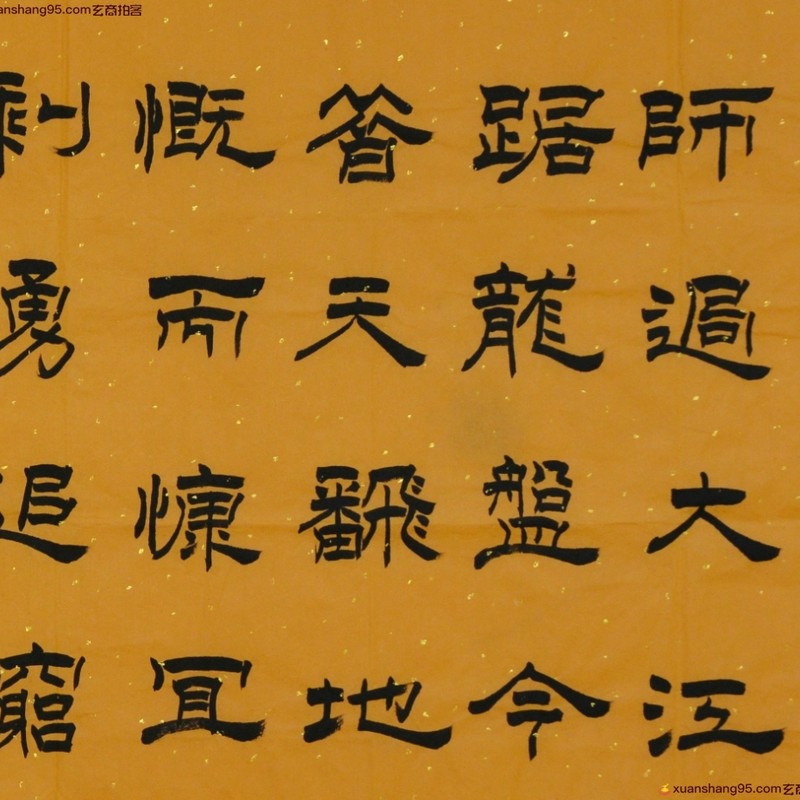 師過大江
踞龍盤今
昔天飜地
慨而慷宜
剩勇追窮
anshang95.com玄商拍客
xuanshang95.com玄商